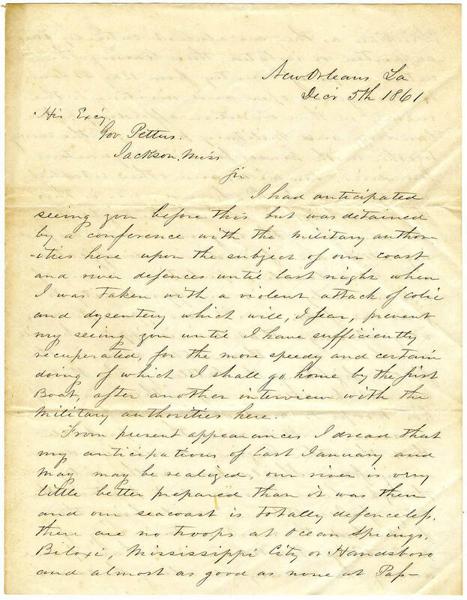 New Orleans La
Dec'r 5th 1861
His Exc'y
Gov. Pettus.
Jackson, Miss
Sir
I had anticipated
seeing you before this but was detained
by a conference with the Military author
-ities here upon the subject of our coast
and river defences until last night when
I was taken with a violent attack of colic
and dysentery which will, I fear, prevent
my seeing you until I have sufficiently
recuperated, for the more speedy and certain
doing of which I shall go home by the first
Boat, after another interview with the
Military authorities here.
From present appearances I dread that
my anticipations of last January and
May may be realized, our river is very
little better prepared than it was then
and our seacoast is totally defenceless.
there are no troops at Ocean Springs.
Biloxi, Mississippi City or Handsboro
and almost as good as none at Pass-